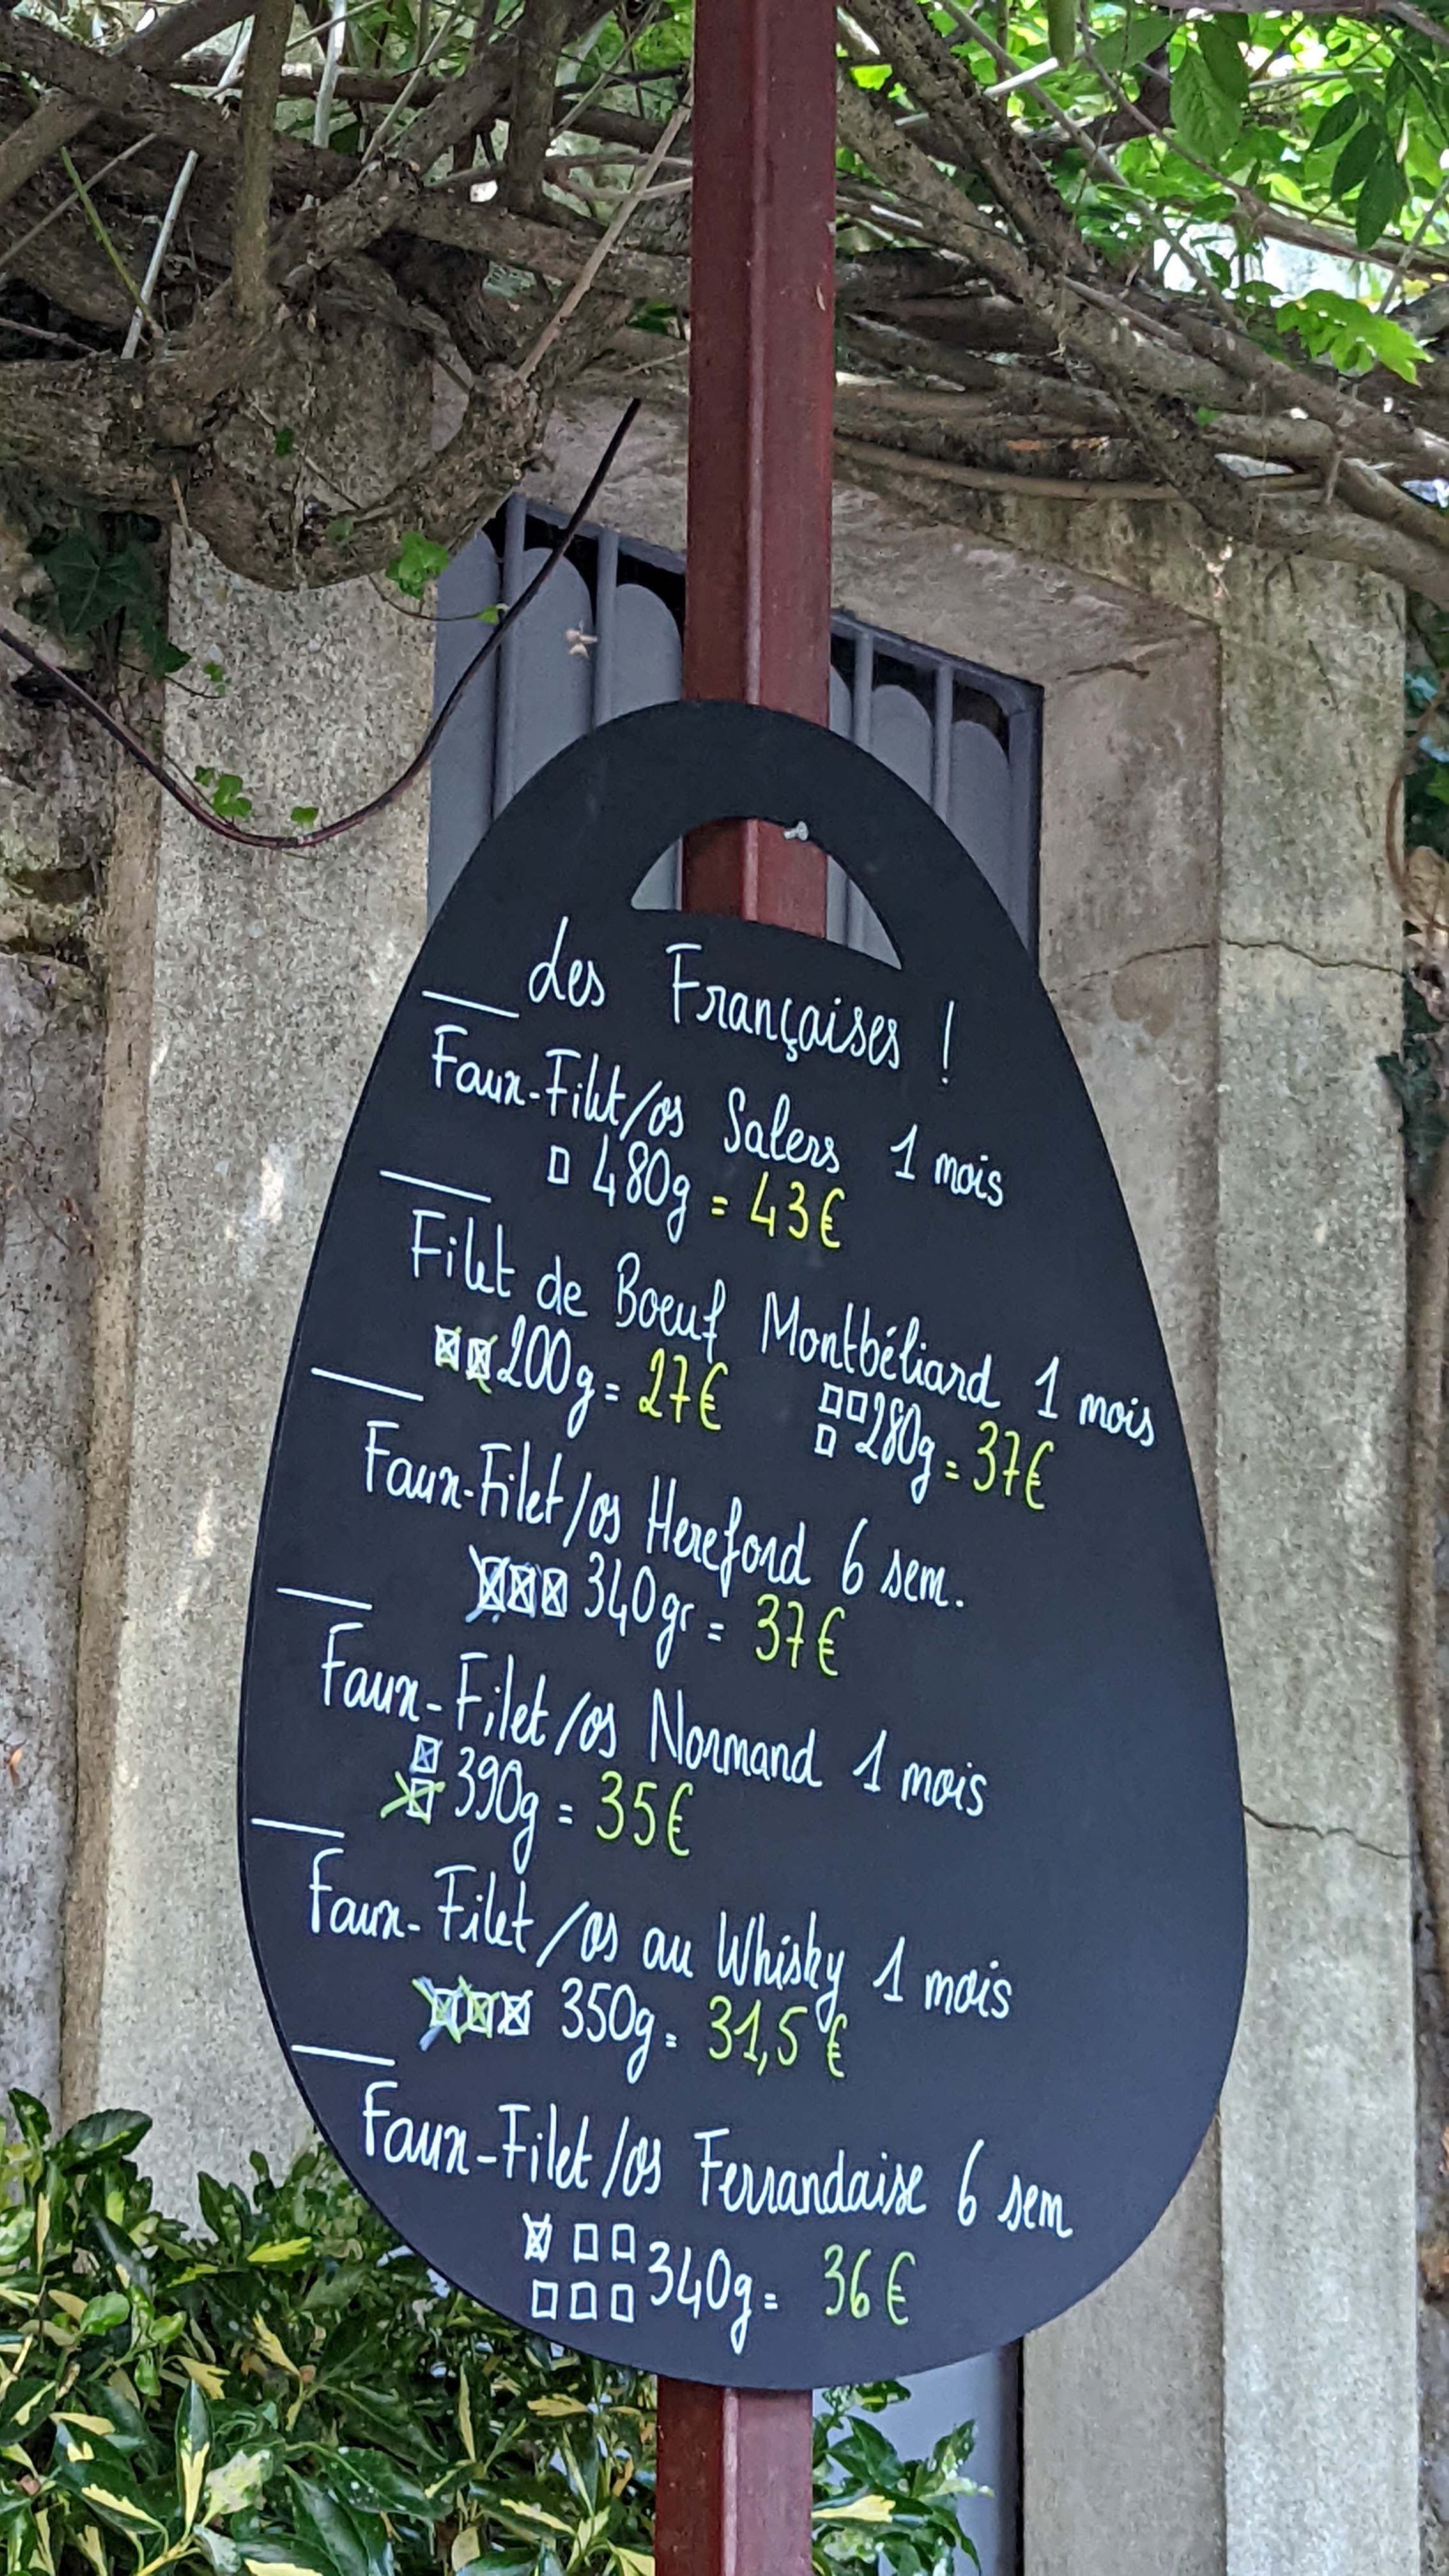 des Françaises !
Faux-Filet/os Salers 1 mois
□ 480g = 43€
Filet de Boeuf Montbéliard 1 mois
☒☒ 200g = 27€ □□□ 280g = 37€
Faux-Filet/os Hereford 6 sem.
☒☒☒ 340gr = 37€
Faux-Filet/os Normand 1 mois
☒☒ 390g = 35€
Faux-Filet/os au Whisky 1 mois
☒☒☒ 350g = 31,5€
Faux-Filet/os Ferrandaise 6 sem
☒□□□□□ 340g = 36€